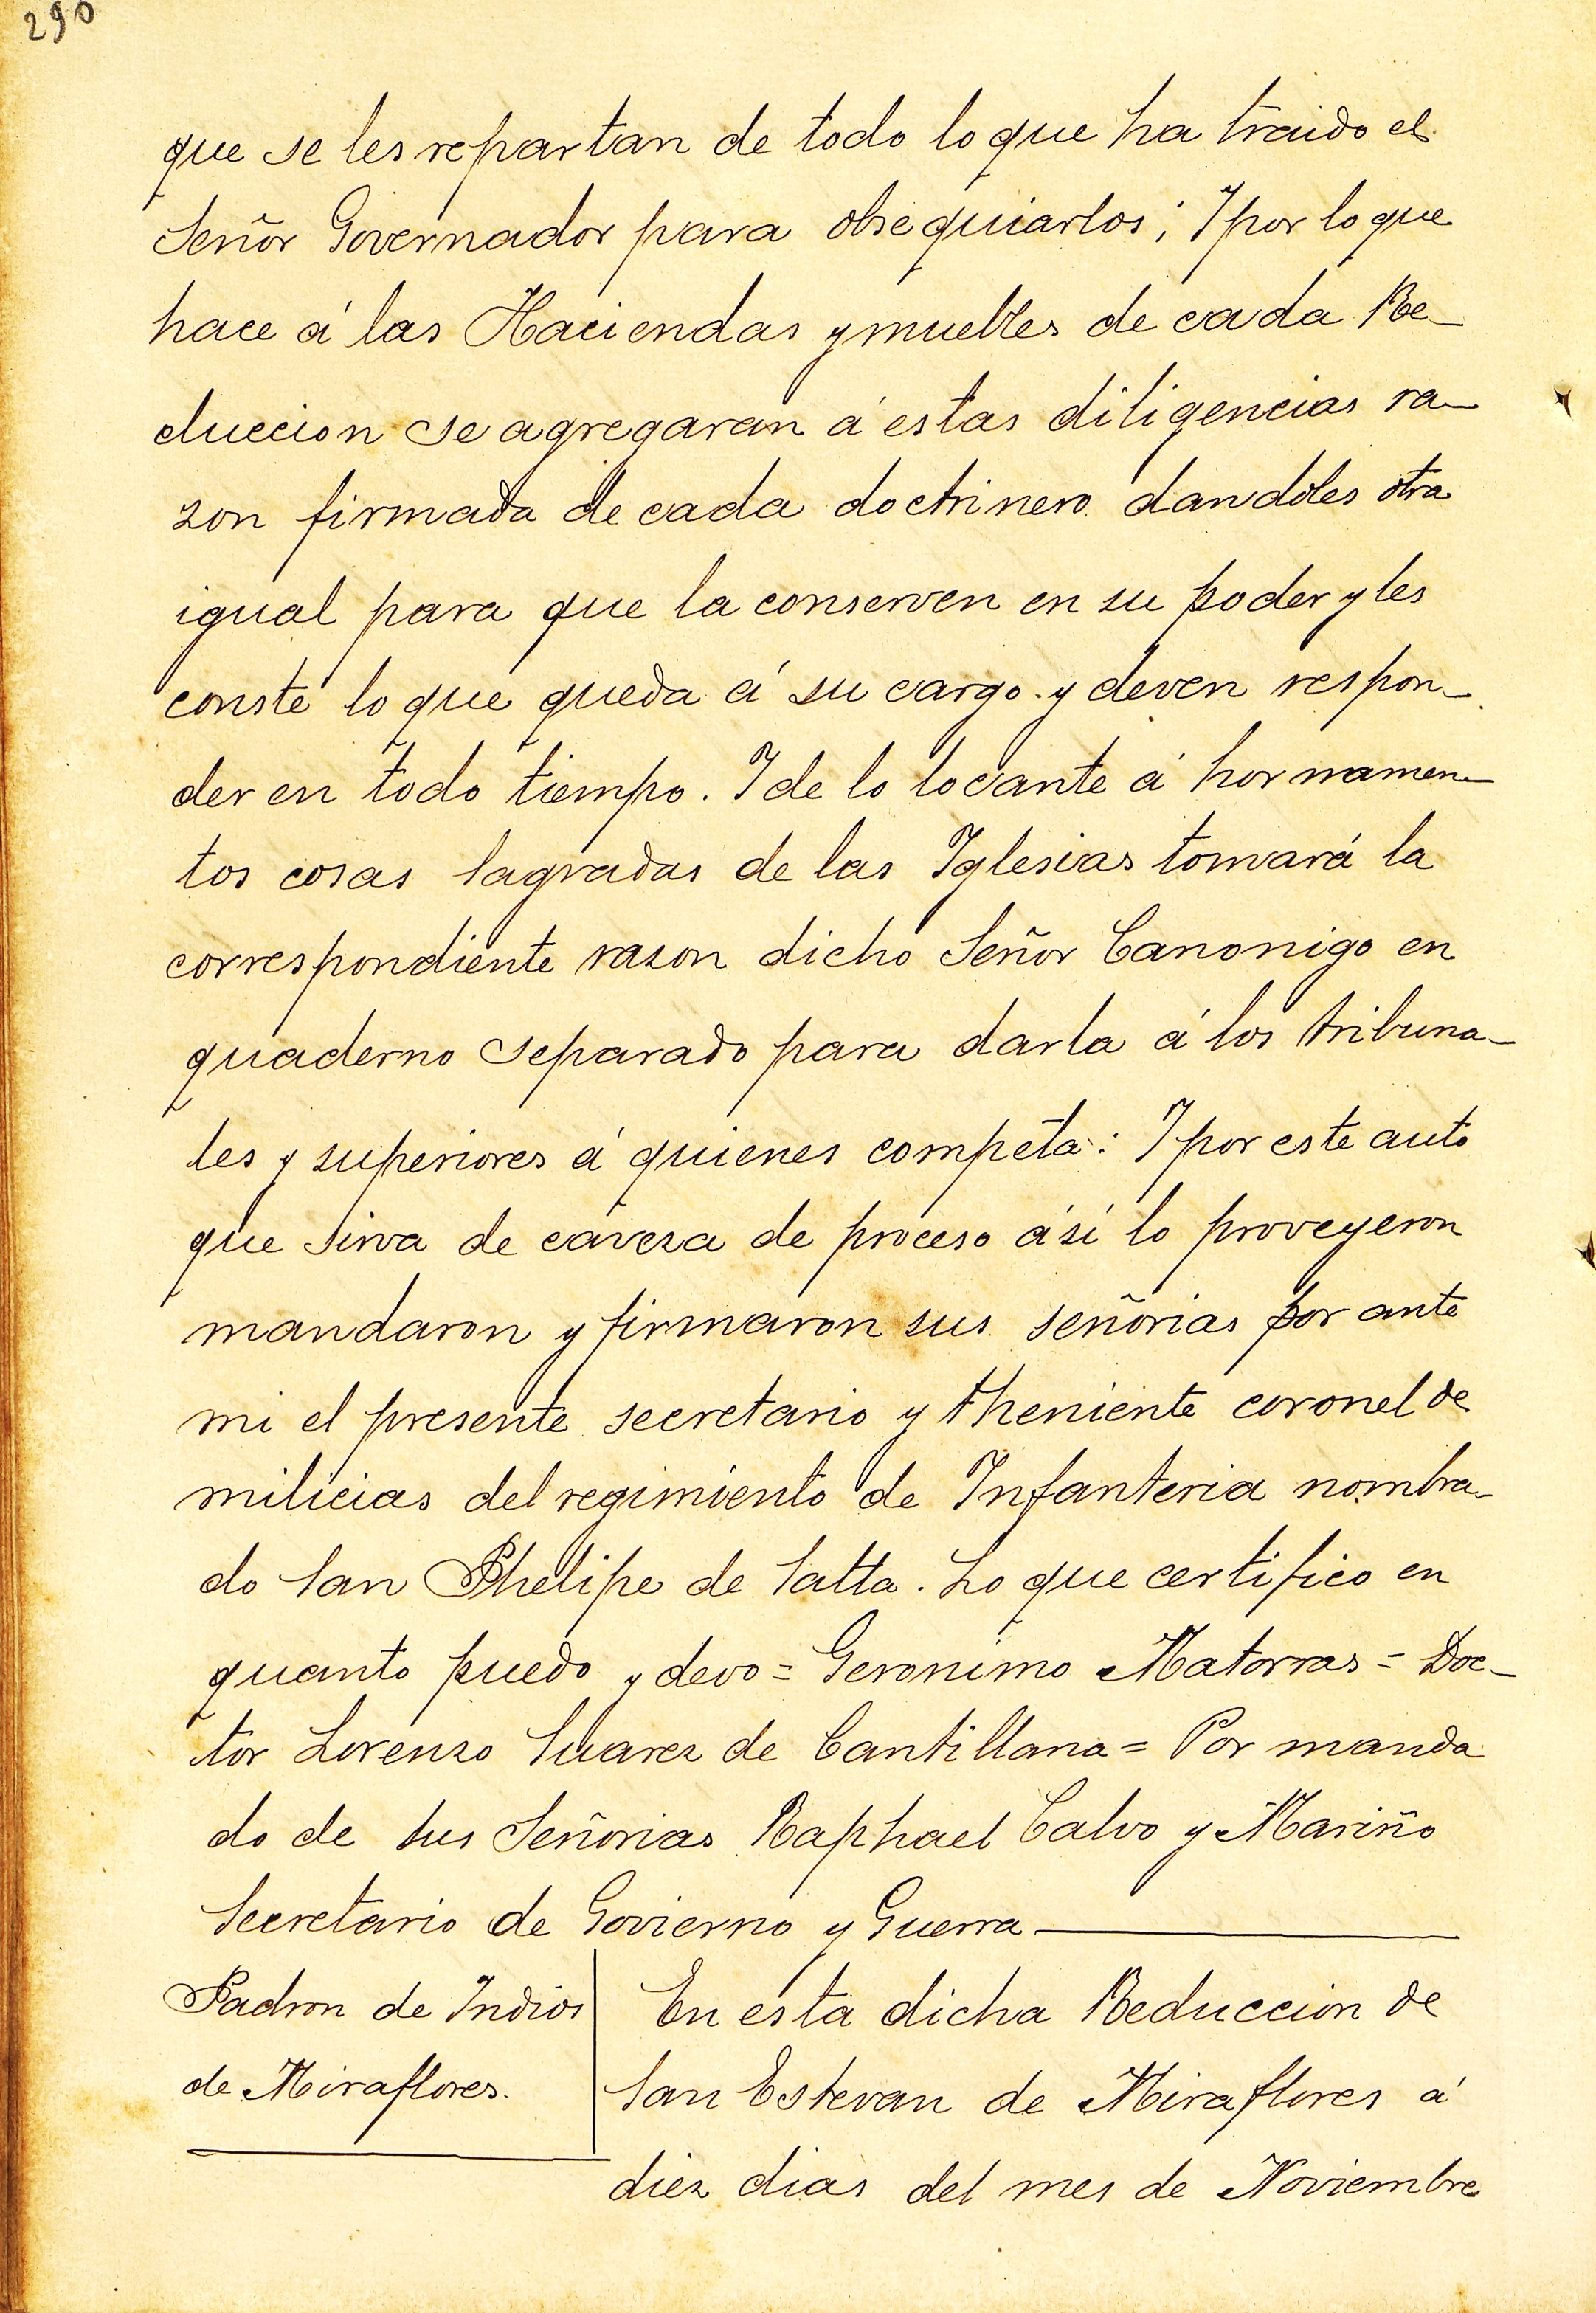 290
que se les repartan de todo lo que ha traido el
Señor Governador para obsequiarlos; I por lo que
hace á las Haciendas y muebles de cada Re-
duccion se agregaran á estas diligencias ra-
zon firmada de cada doctrinero dandoles otra
igual para que la conserven en su poder y les
conste lo que queda á su cargo y deven respon-
der en todo tiempo. I de lo tocante á hornamen-
tos cosas Sagradas de las Iglesias tomará la
correspondiente razon dicho Señor Canonigo en
quaderno separado para darla á los tribuna-
les y superiores á quienes competa: I por este auto
que sirva de caveza de proceso ási lo proveyeron
mandaron y firmaron sus señorias por ante
mi el presente secretario y theniente coronel de
milicias del regimiento de Infanteria nombra-
do San Phelipe de Salta. Lo que certifico en
quanto puedo y devo = Geronimo Matorras = Doc-
tor Lorenzo Suarez de Cantillana = Por manda
do de sus Señorias Raphael Calvo y Mariño
Secretario de Govierno y Guerra
Padron de Indios
de Miraflores.
En esta dicha Reduccion de
San Estevan de Miraflores á
diez dias del mes de Noviembre